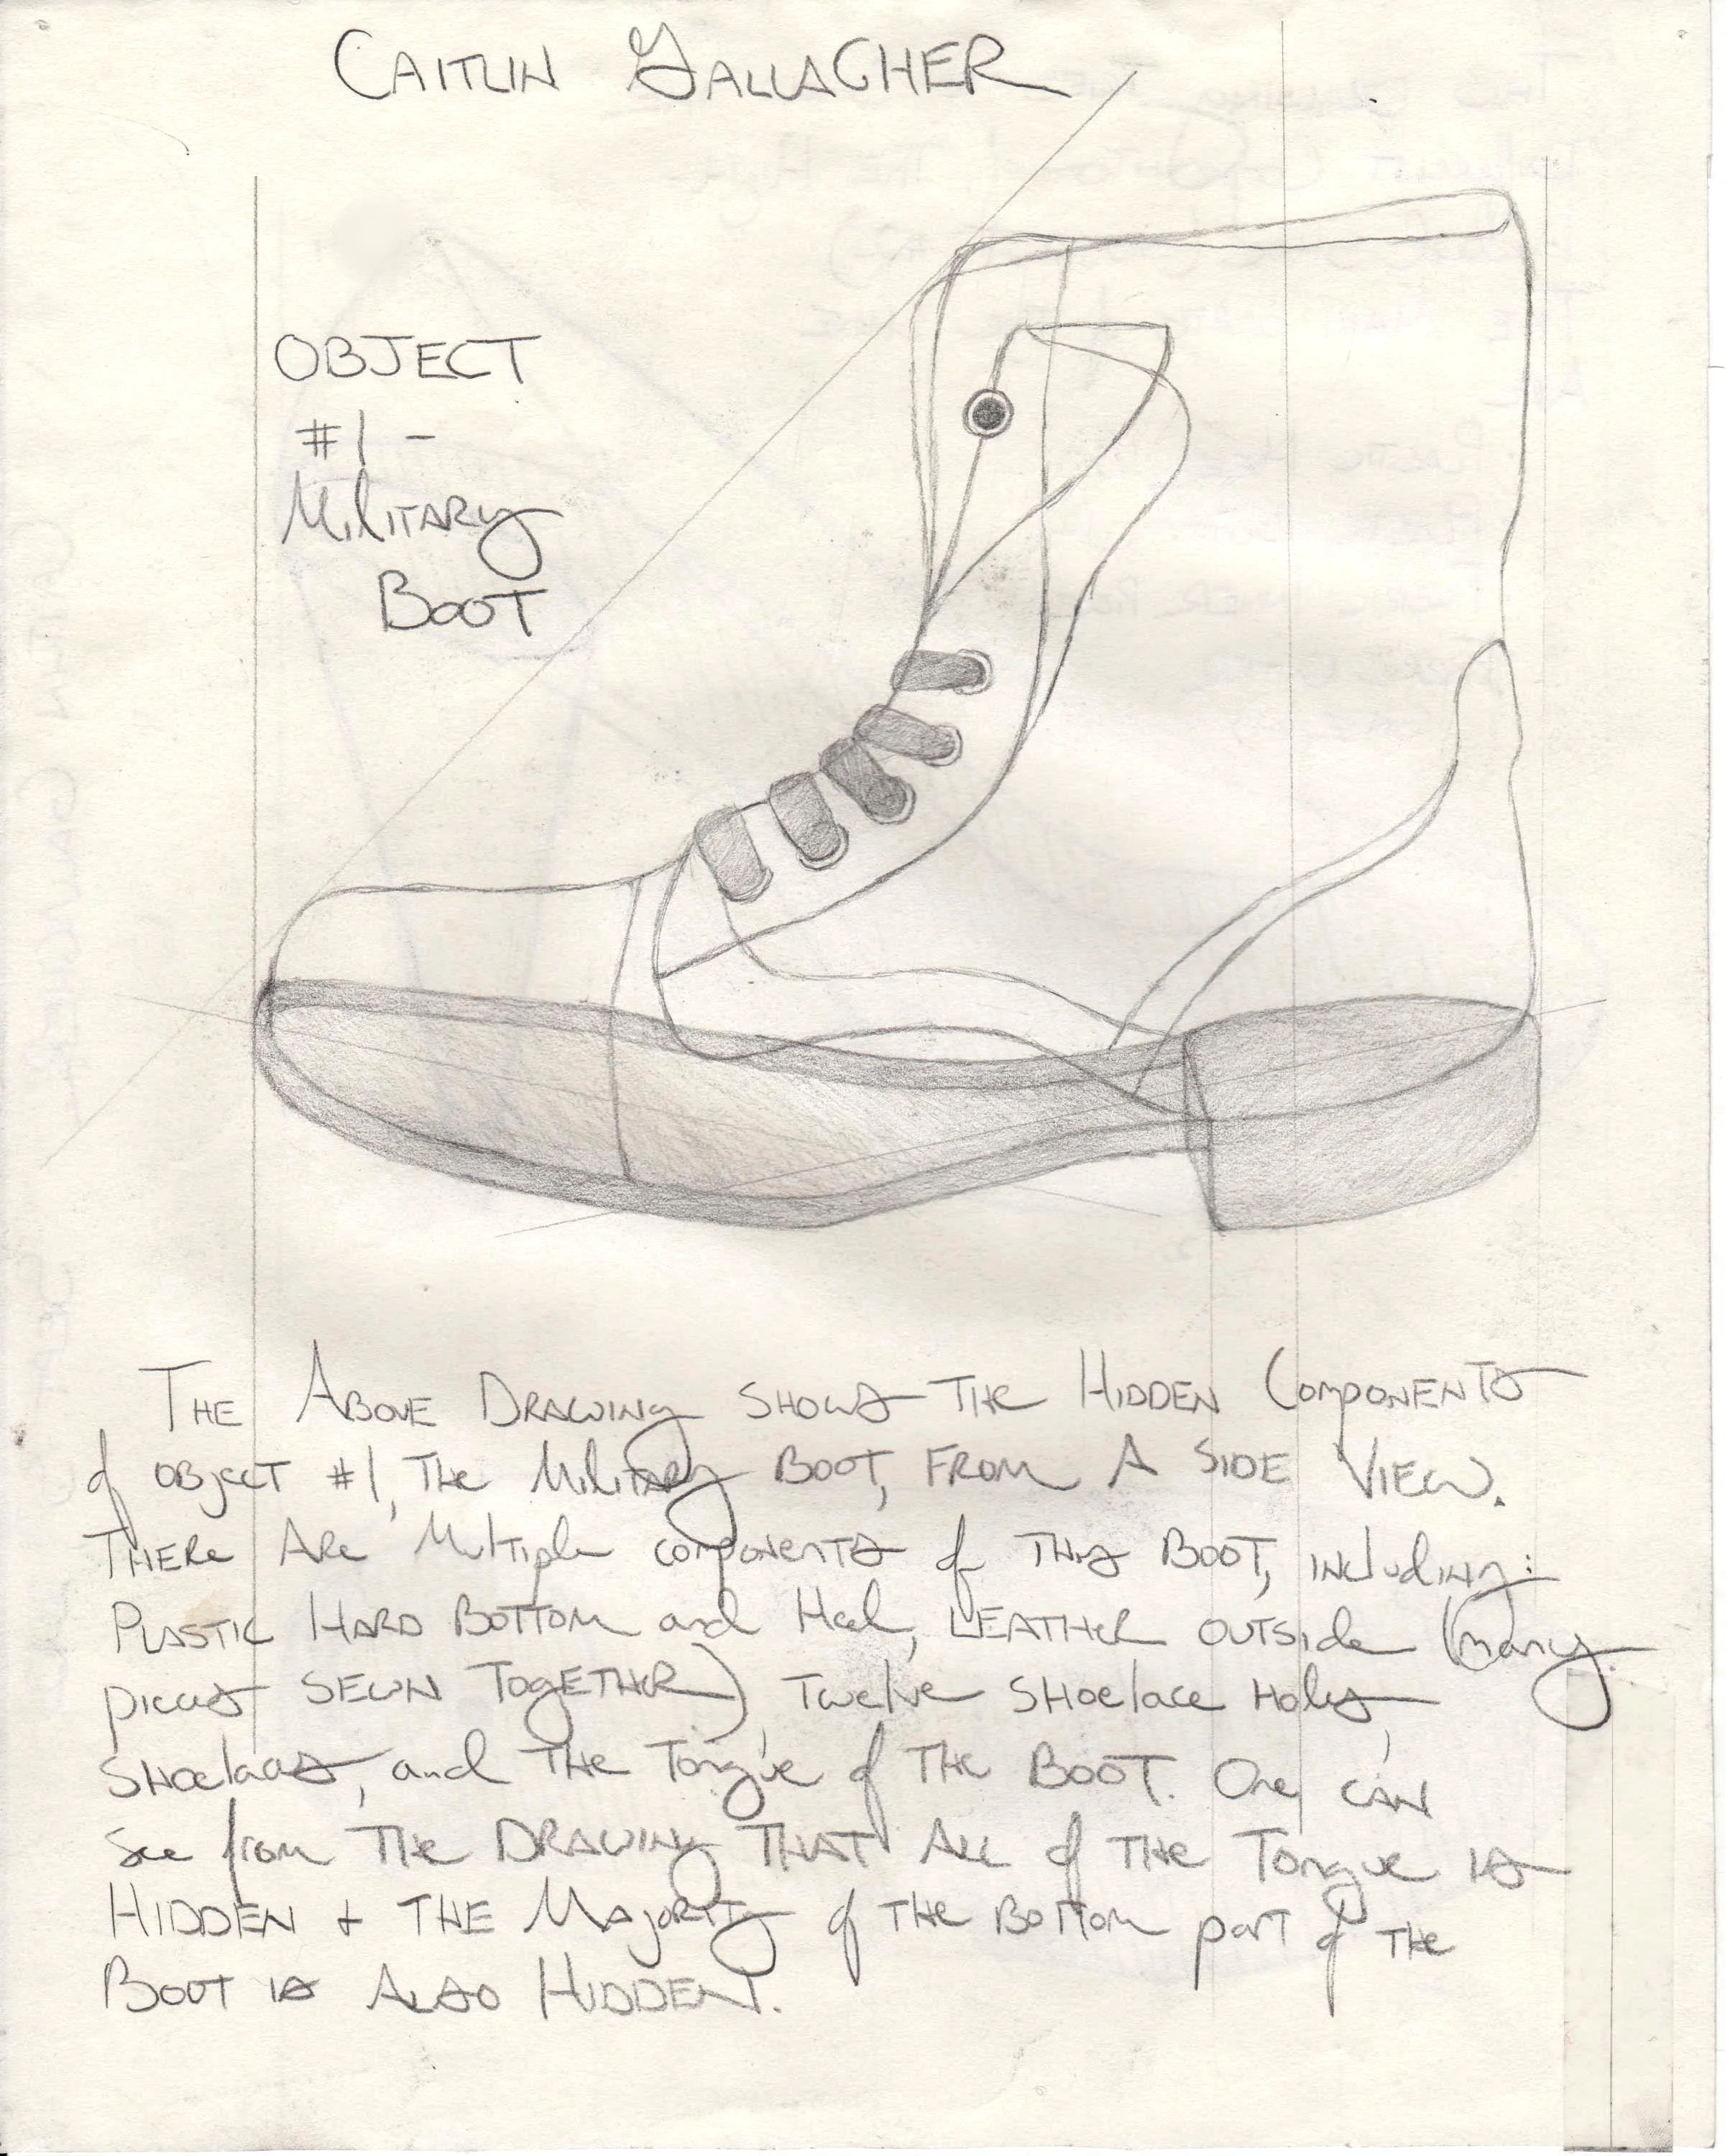 CAITLIN GALLAGHER
OBJECT
#1 -
Military
BOOT
THE ABOVE DRAWING SHOWS THE HIDDEN COMPONENTS
of OBJECT #1, THE Military BOOT, FROM A SIDE VIEW.
THERE ARE Multiple COMPONENTS of THIS BOOT, including:
PLASTIC HARD BOTTOM and Heel, LEATHER OUTSIDE (many
pieces SEWN TOGETHER), Twelve SHOElace Holes,
SHOElaces, and THE Tongue of THE BOOT. One CAN
See from THE DRAWING THAT ALL of THE Tongue is
HIDDEN + THE MAJORITY of THE BOTTOM part of THE
BOOT is ALSO HIDDEN.